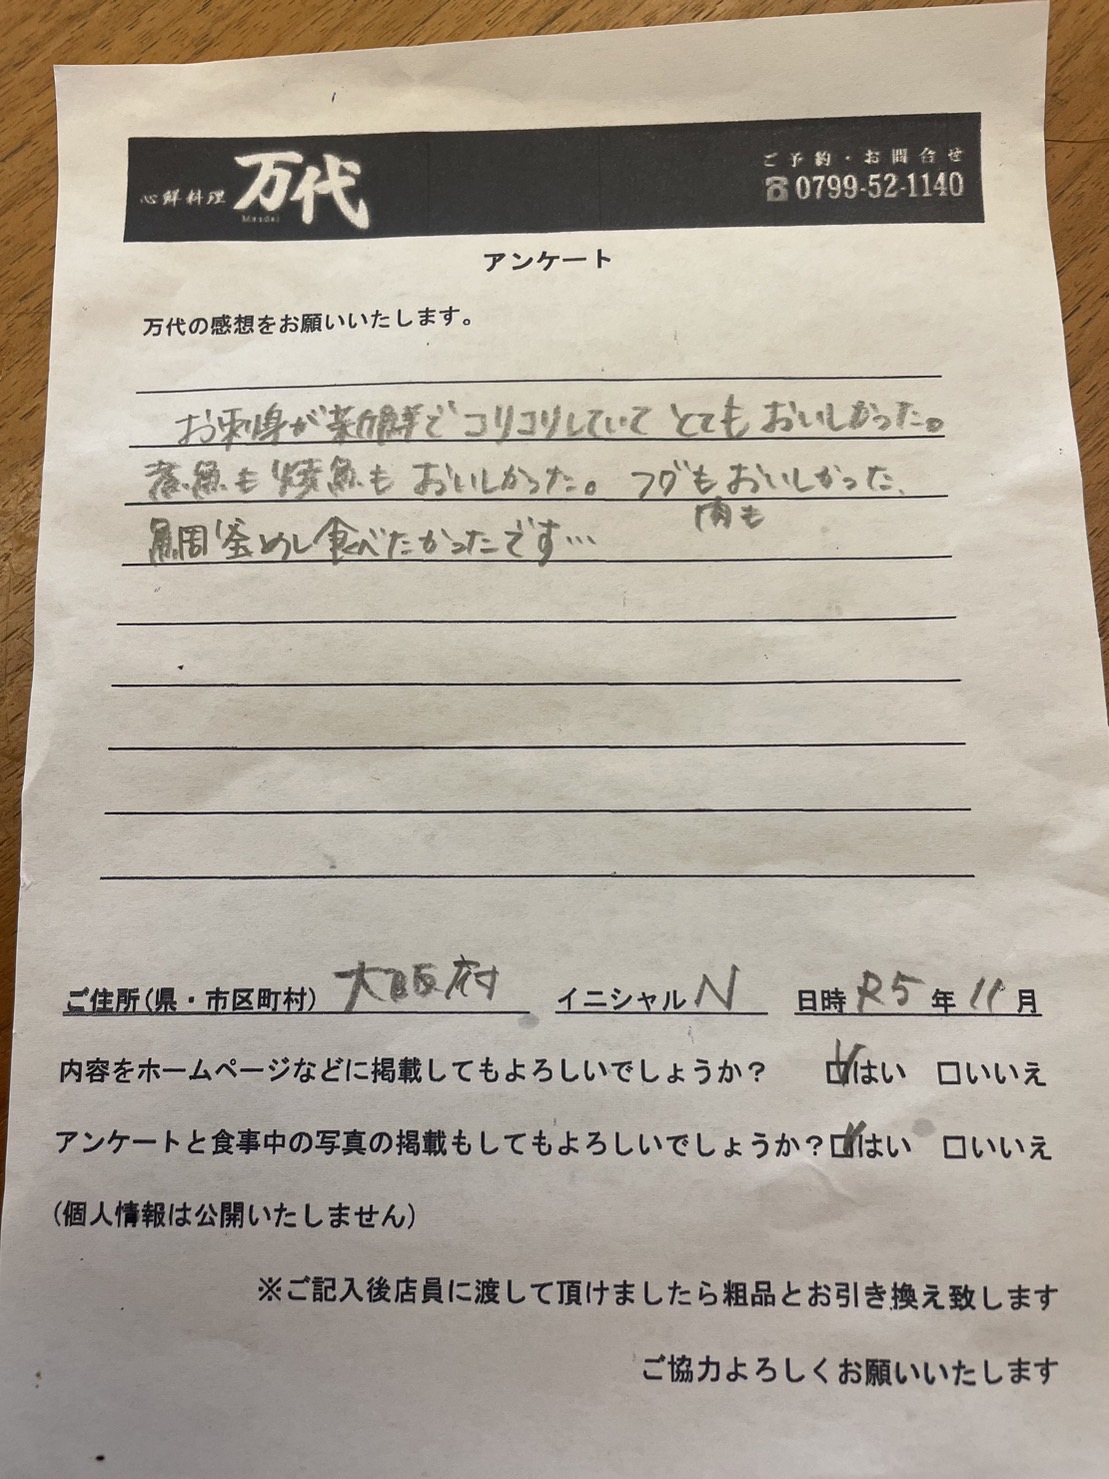 心鮮料理 万代
Mandai
ご予約・お問合せ
☎0799-52-1140
アンケート
万代の感想をお願いいたします。
お刺身が新鮮でコリコリしていてとてもおいしかった。
煮魚も焼魚もおいしかった。フグもおいしかった、
肉も
鯛釜めし食べたかったです…
ご住所(県・市区町村) 大阪府 イニシャル N 日時 R5 年 11 月
内容をホームページなどに掲載してもよろしいでしょうか? ☑はい □いいえ
アンケートと食事中の写真の掲載もしてもよろしいでしょうか?☑はい □いいえ
(個人情報は公開いたしません)
※ご記入後店員に渡して頂けましたら粗品とお引き換え致します
ご協力よろしくお願いいたします